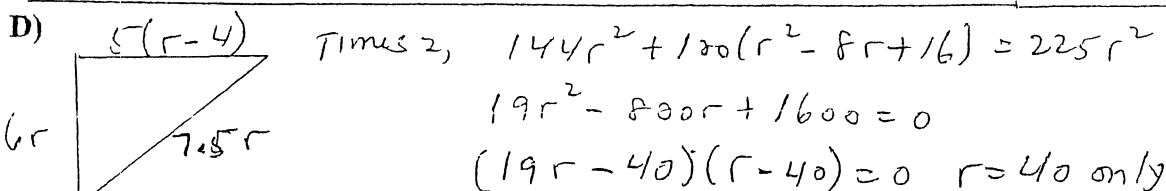 D) 5(r-4) Times 2, 144r² + 100(r² - 8r + 16) = 225r²
19r² - 800r + 1600 = 0
6r 7.5r (19r - 40)(r - 40) = 0 r = 40 only